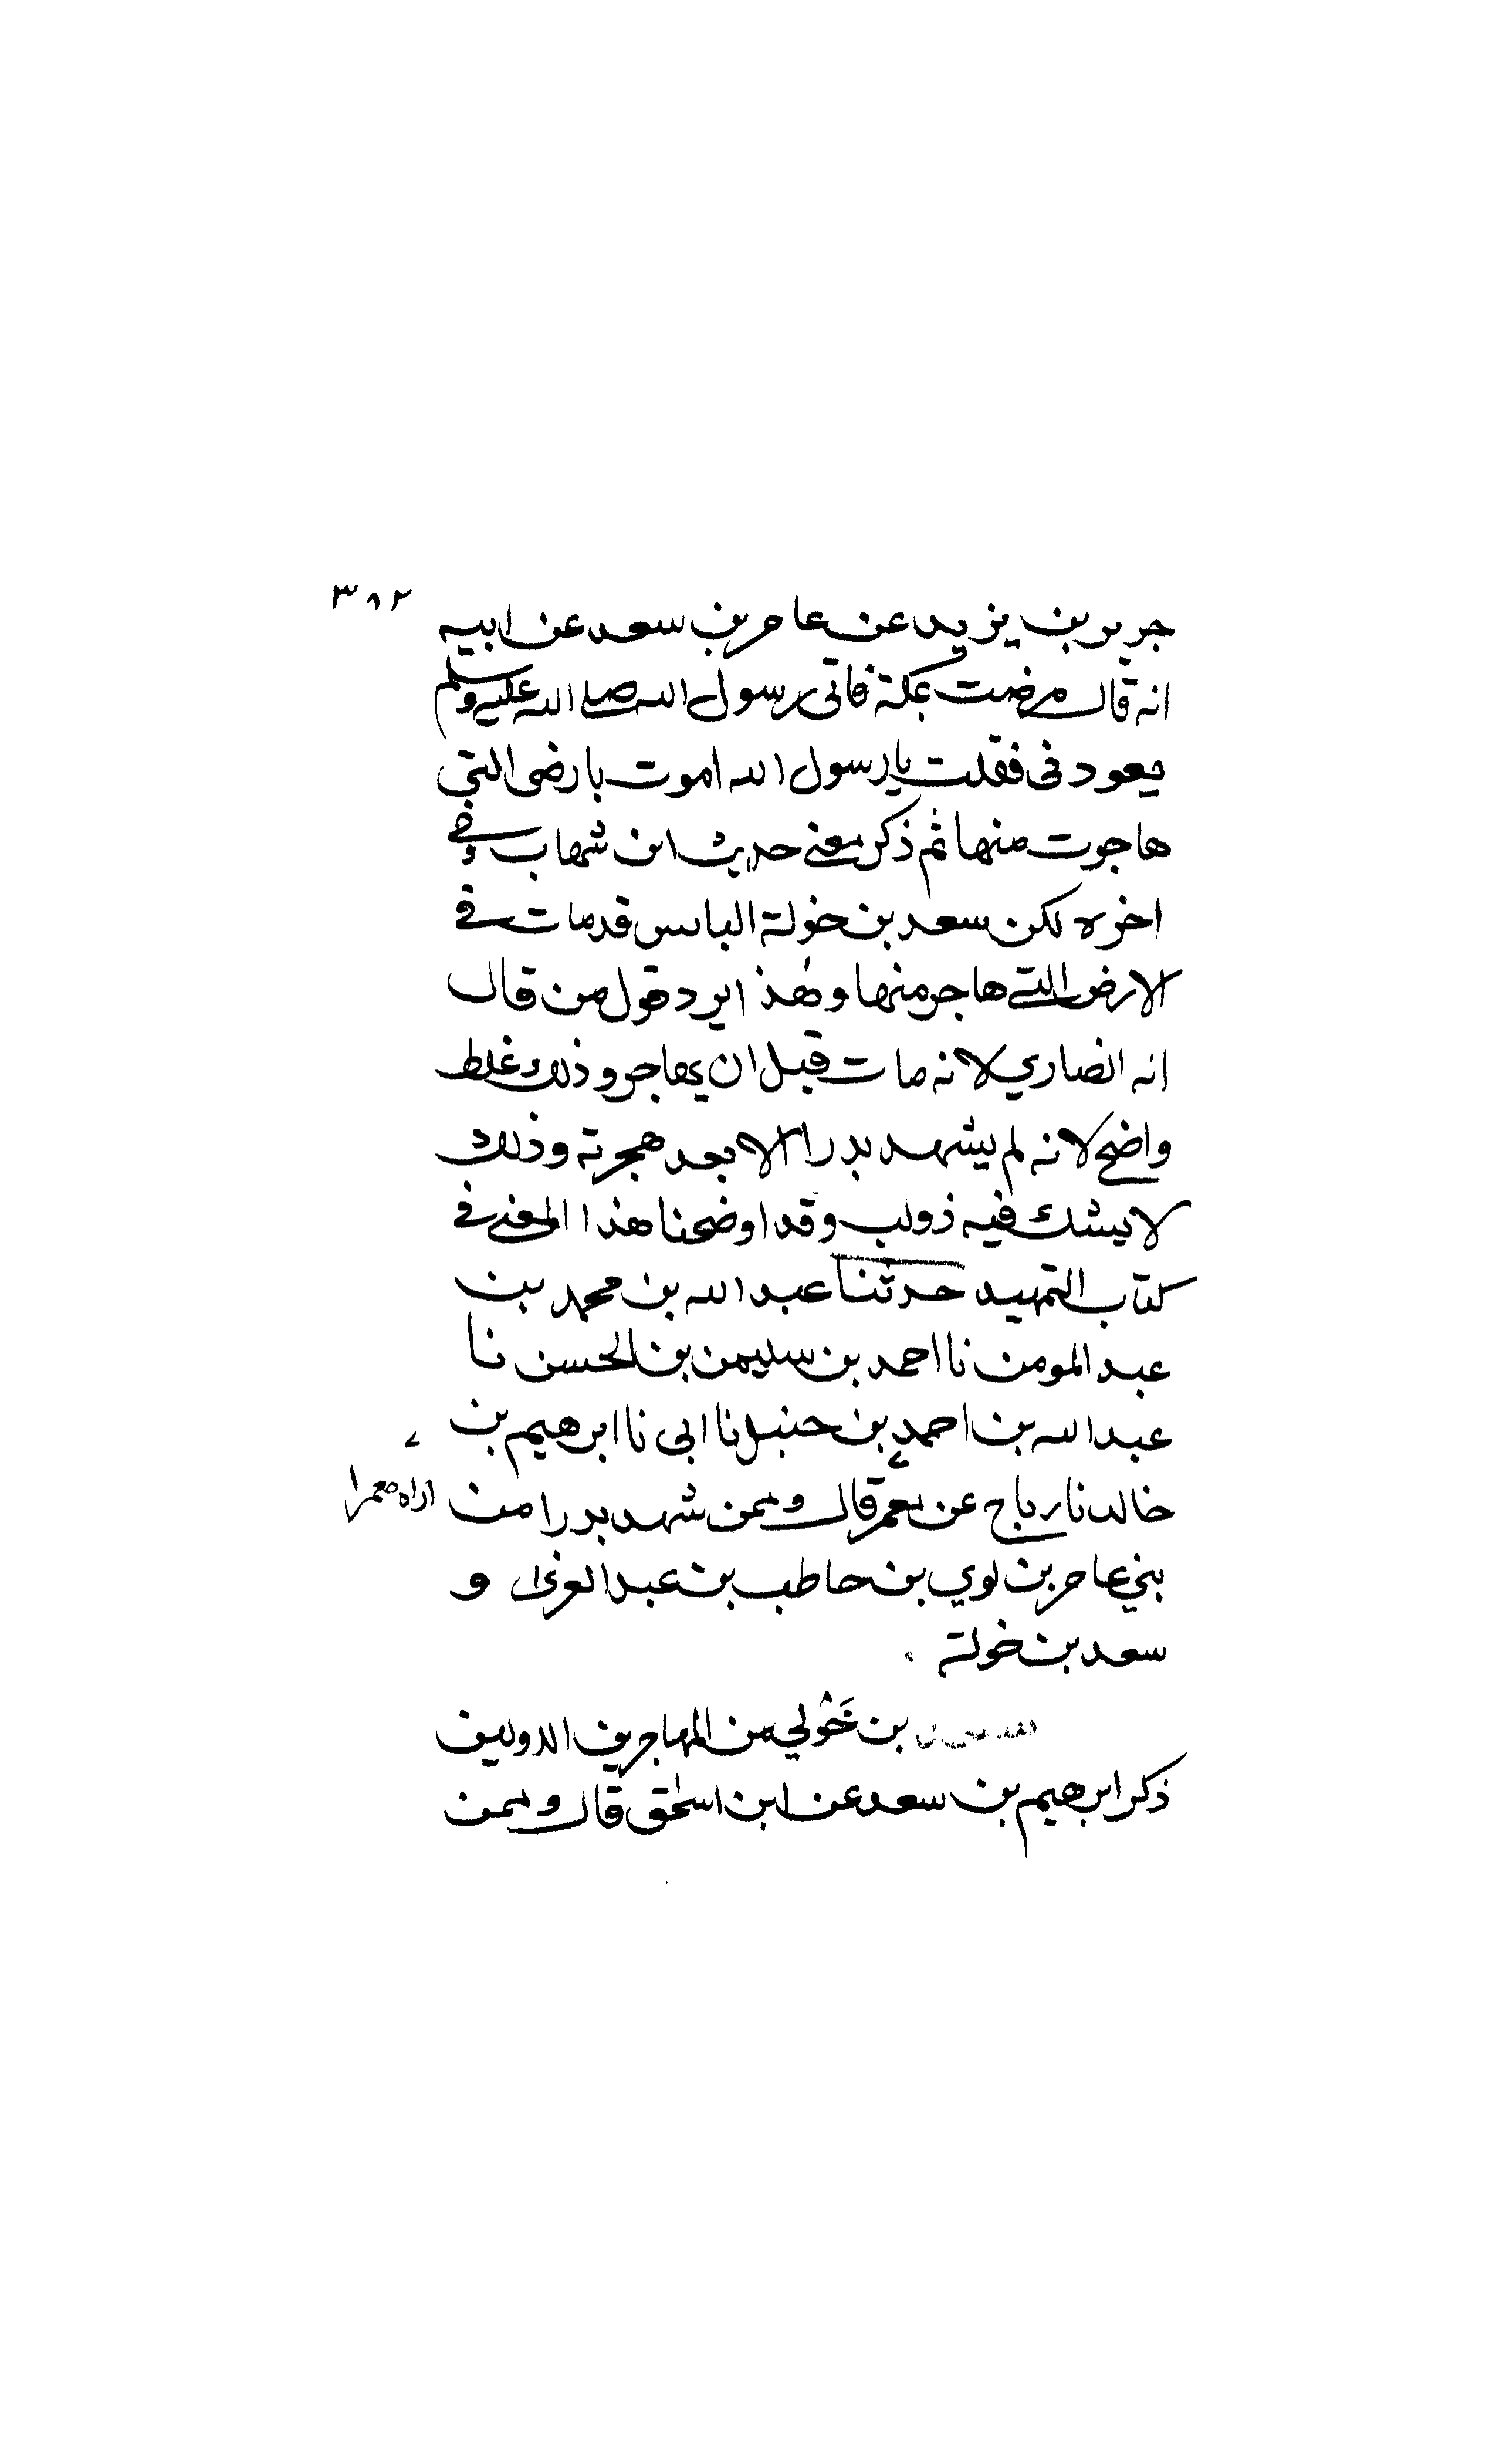 ٣٨٢
جرير بن يزيد عن عامر بن سعد عن ابيه
انه قال مرضت بمكة فاتى رسول الله صلى الله عليه وسلم
يعودنى فقلت يا رسول الله اموت بارضى التي
هاجرت منها ثم ذكر معنى حديث ابن شهاب وفي
اخره لكن سعد بن خولة البائس قد مات في
الارض التي هاجر منها وهذا يرد قول من قال
انه انما ري لانه مات قبل ان يهاجر وذلك غلط
واضح لانه لم يشهد بدرا الا بعد هجرته وذلك
لا يشك فيه ذو لب وقد اوضحنا هذا المعنى في
كتاب التمهيد حدثنا عبد الله بن محمد بن
عبد المومن نا احمد بن سليمن بن الحسن نا
عبد الله بن احمد بن حنبل نا ابى نا ابرهيم بن
خالد نا رباح عن معمر قال وممن شهد بدرا من
اراه معمرا
بني عامر بن لوي بن حاطب بن عبد العزى و
سعد بن خولة
بن خَوْلي من المهاجرين الاولين
ذكر ابرهيم بن سعد عن ابن اسحق قال وممن